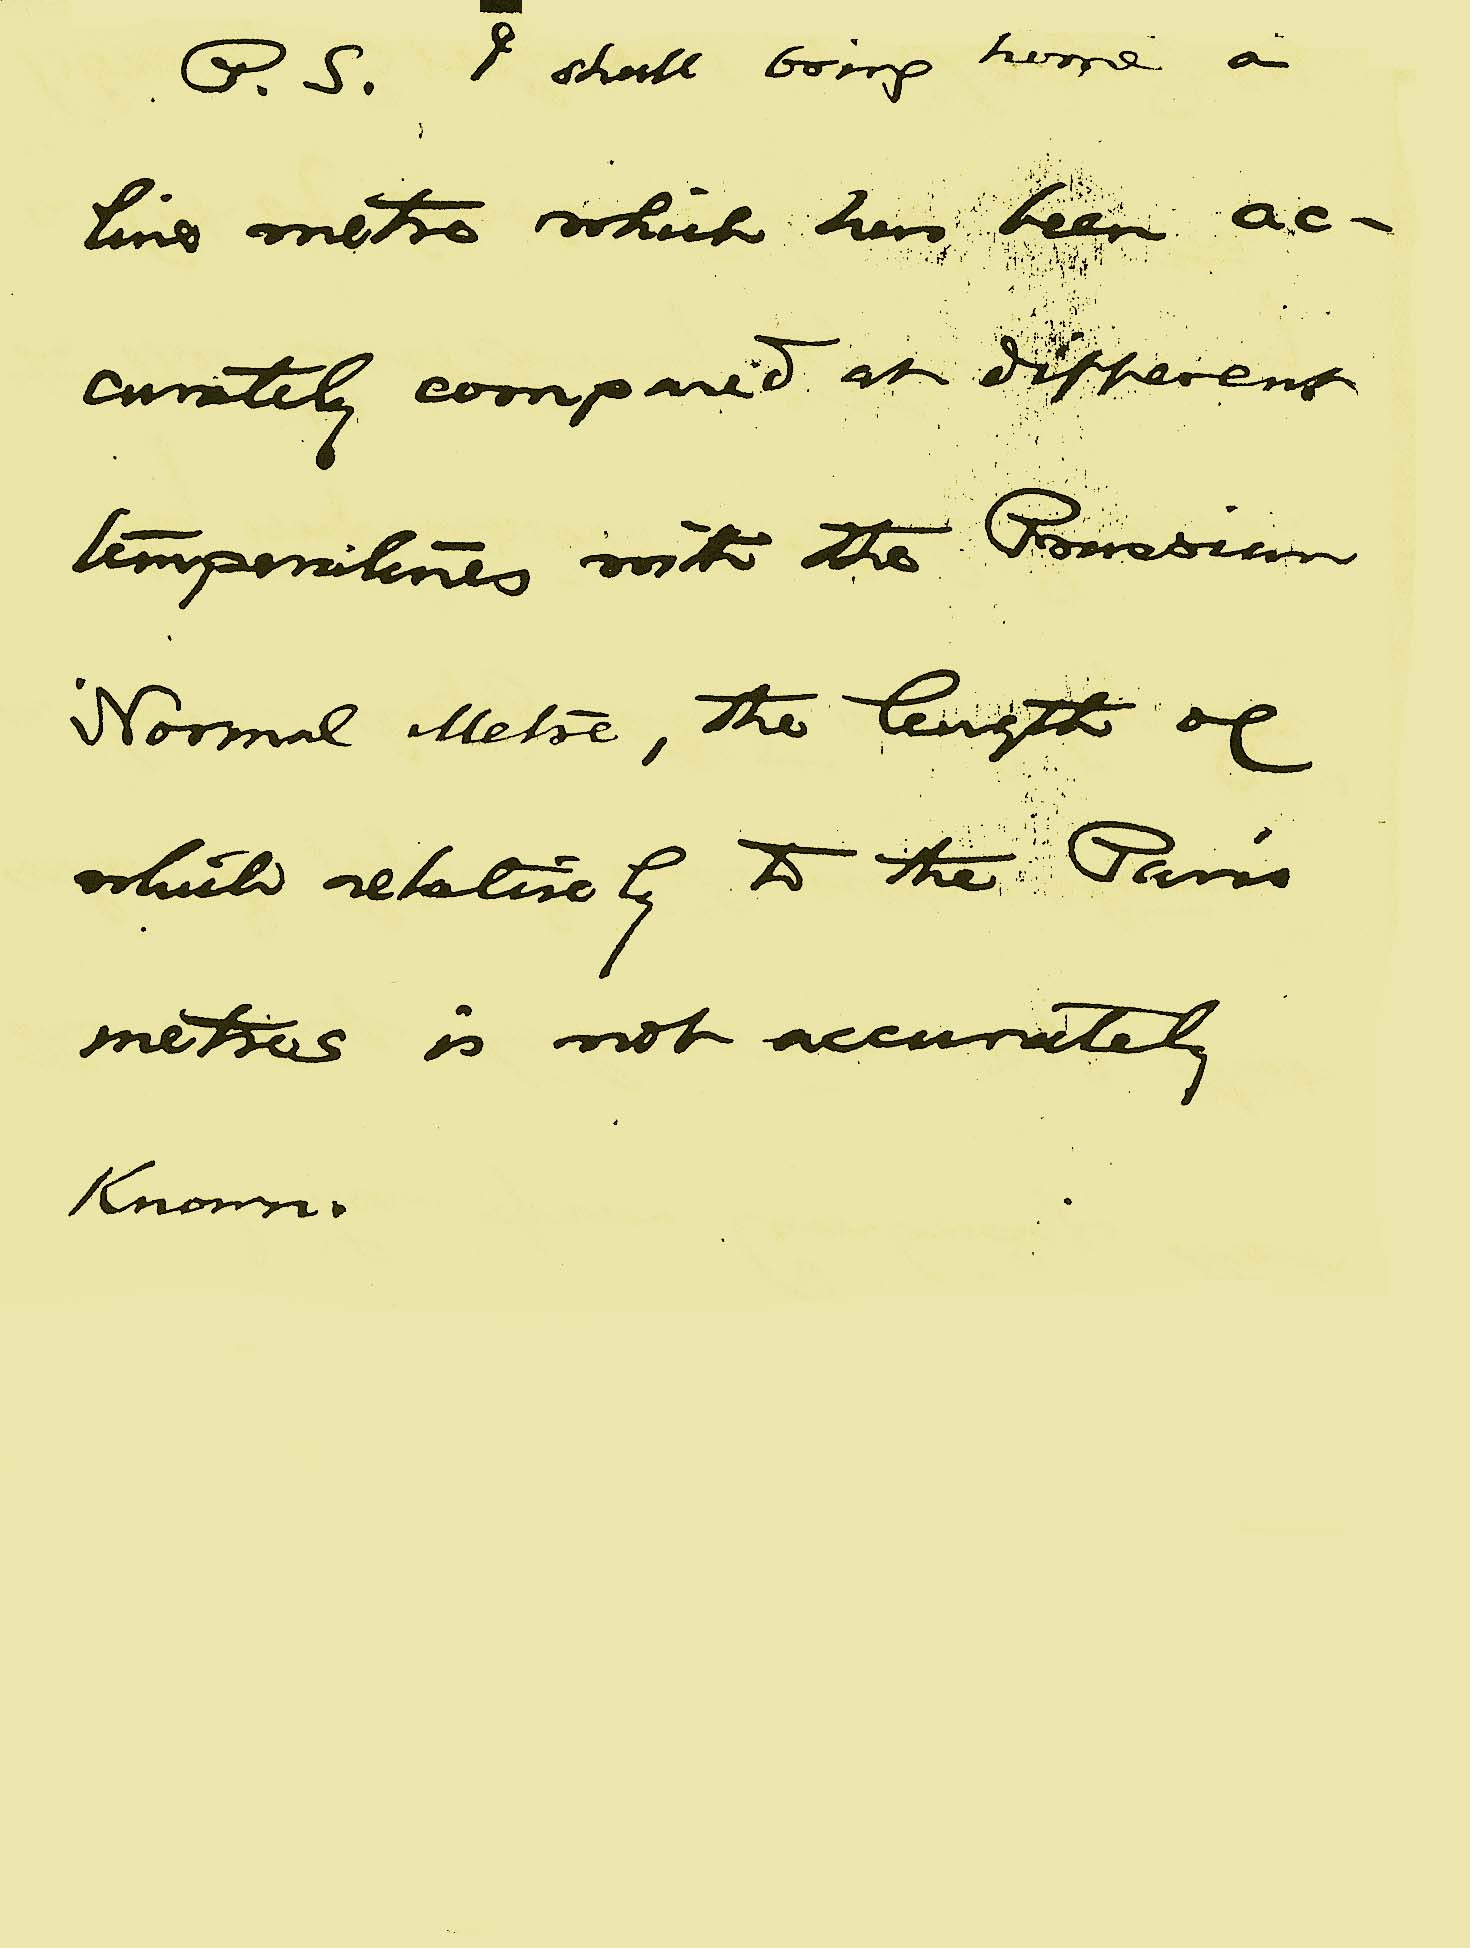 P. S. I shall bring home a
line metre which has been ac-
curately compared at different
temperatures with the Prussian
Normal Metre, the length of
which relatively to the Paris
metres is not accurately
Known.